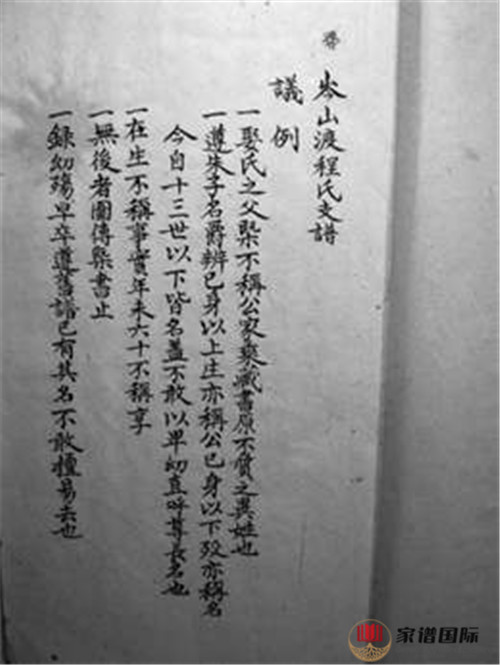 岑山渡程氏支譜
議例
一娶氏之父槩不稱公家乗藏書原不質之異姓也
一遵朱子名爵辨已身以上庄亦稱公已身以下歿亦稱名
今自十三世以下皆名盖不敢以卑幼直呼尊長名也
一在生不稱事實年未六十不稱享
一無後者圖傳槩書止
一録幼殤早卒遵舊譜已有其名不敢擅易去也
家谱国际